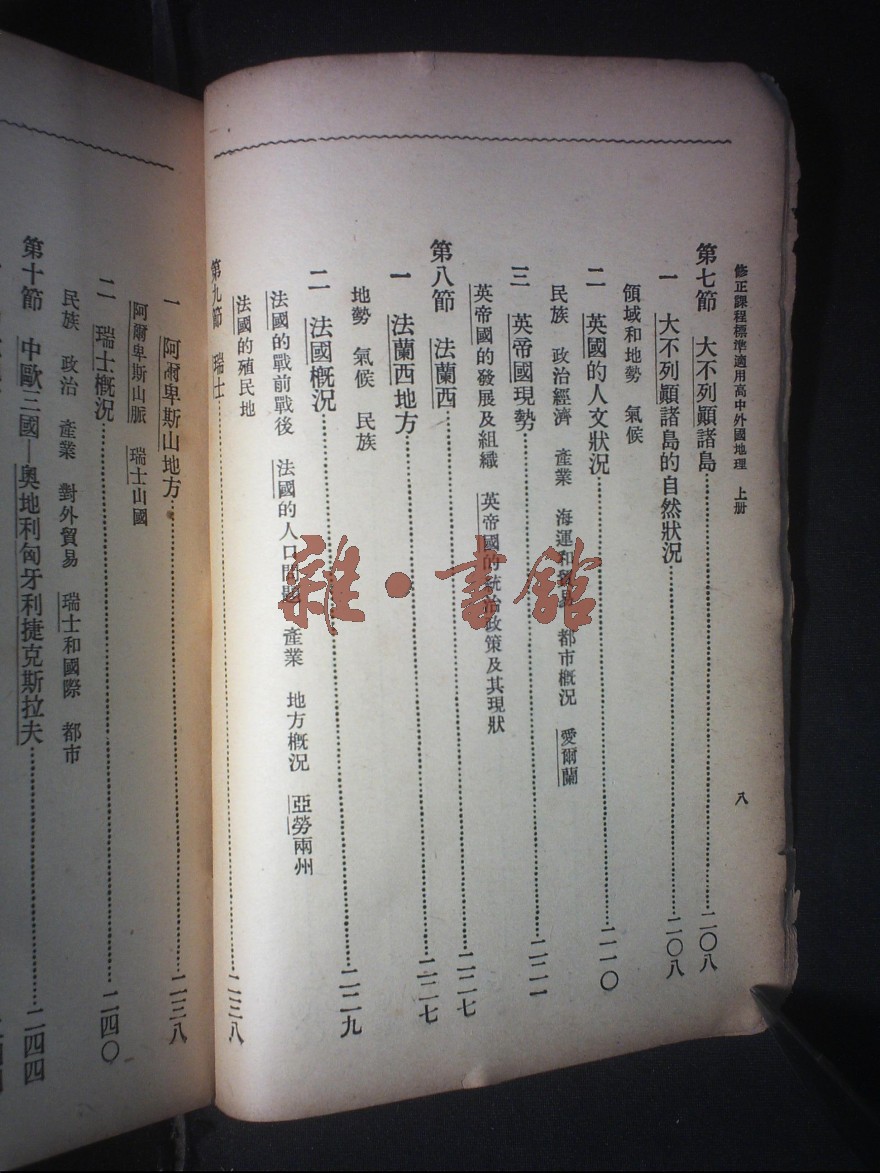 修正課程標準適用高中外國地理　上册
八
第七節　大不列顚諸島……二〇八
一　大不列顚諸島的自然狀況……二〇八
領域和地勢　氣候
二　英國的人文狀况……二一〇
民族　政治經濟　產業　海運和貿易　都市槪況　愛爾蘭
三　英帝國現勢……二二一
英帝國的發展及組織　英帝國的統治政策及其現狀
第八節　法蘭西……二二七
一　法蘭西地方……二二七
地勢　氣候　民族
二　法國槪况……二二九
法國的戰前戰後　法國的人口問題　產業　地方槪況　亞勞兩州
法國的殖民地
第九節　瑞士……二三八
一　阿爾卑斯山地方……二三八
阿爾卑斯山脈　瑞士山國
二　瑞士槪况……二四〇
民族　政治　產業　對外貿易　瑞士和國際　都市
第十節　中歐三國—奧地利匈牙利捷克斯拉夫……二四四
雜·書館